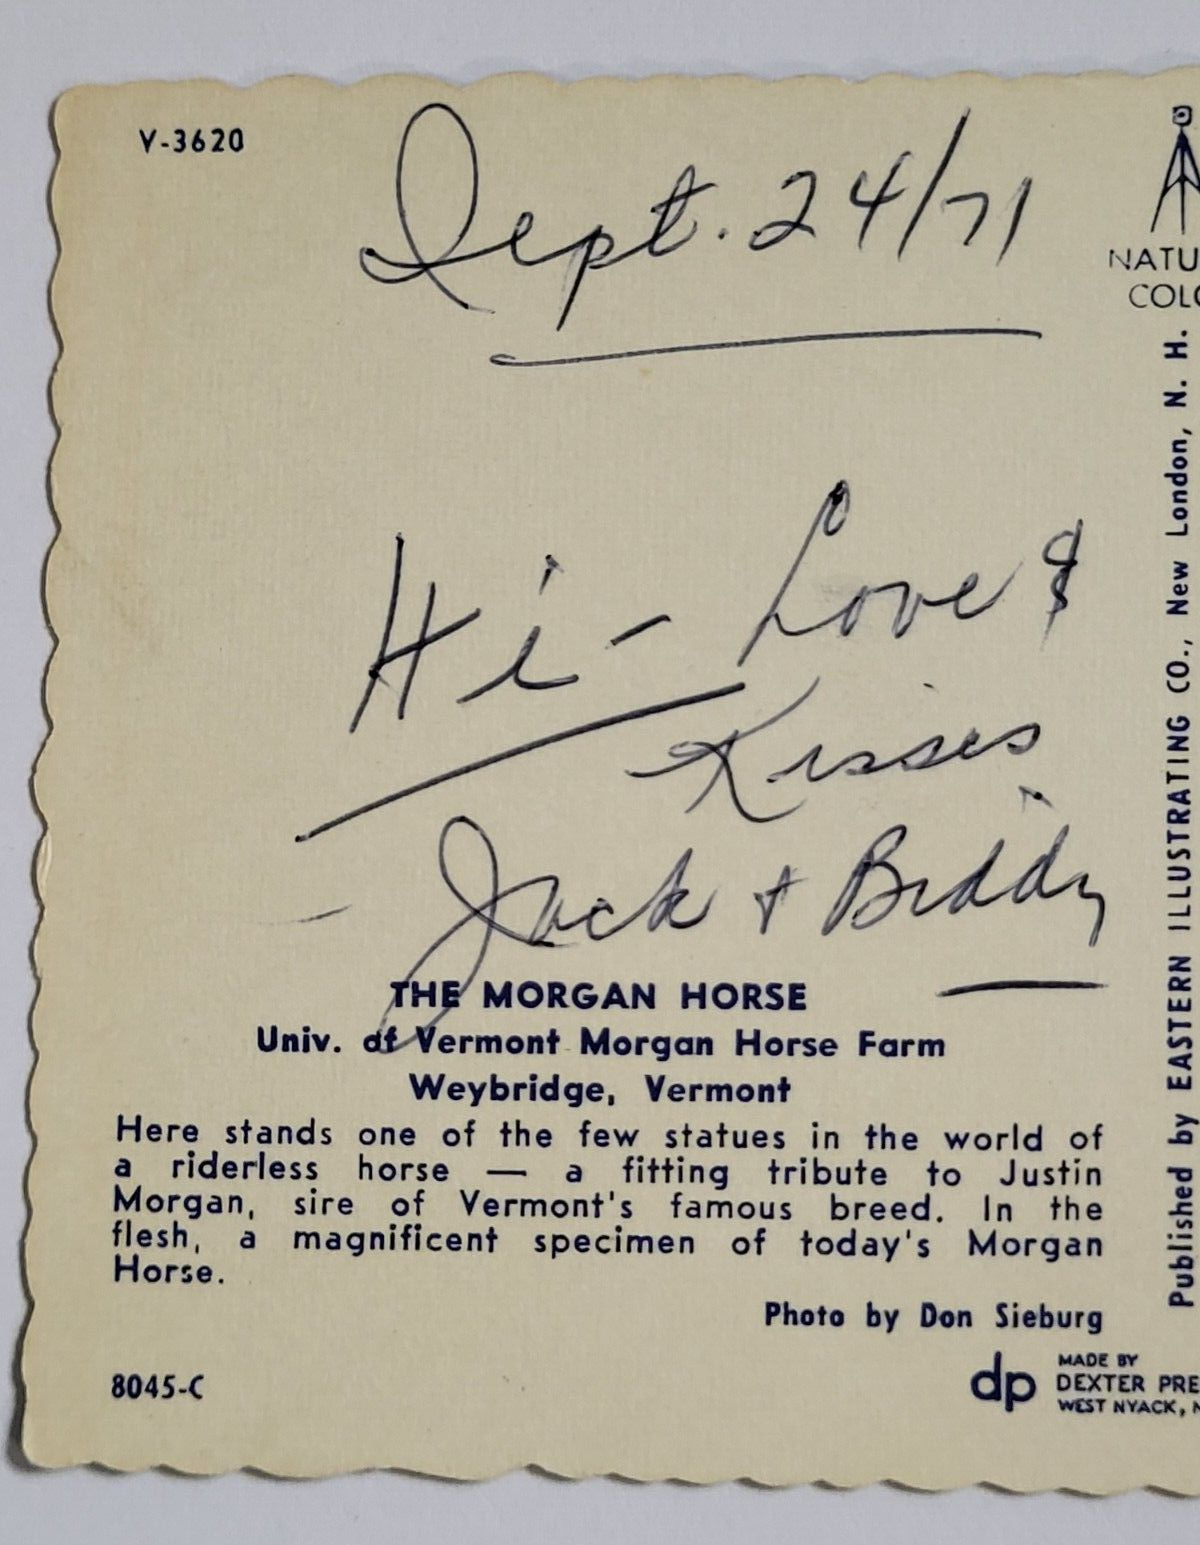 V-3620
Sept. 24/71
Hi - Love &
Kisses
- Jack + Biddy
THE MORGAN HORSE
Univ. of Vermont Morgan Horse Farm
Weybridge, Vermont
Here stands one of the few statues in the world of
a riderless horse — a fitting tribute to Justin
Morgan, sire of Vermont's famous breed. In the
flesh, a magnificent specimen of today's Morgan
Horse.
Photo by Don Sieburg
8045-C
dp
MADE BY
DEXTER PRE
WEST NYACK, N
NATU
COLO
Published by EASTERN ILLUSTRATING CO., New London, N. H.